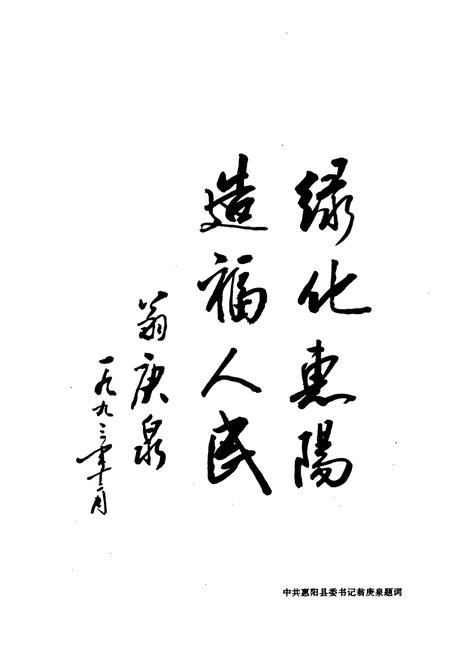 绿化惠陽
造福人民
翁庚泉
一九九三年十二月
中共惠阳县委书记翁庚泉题词